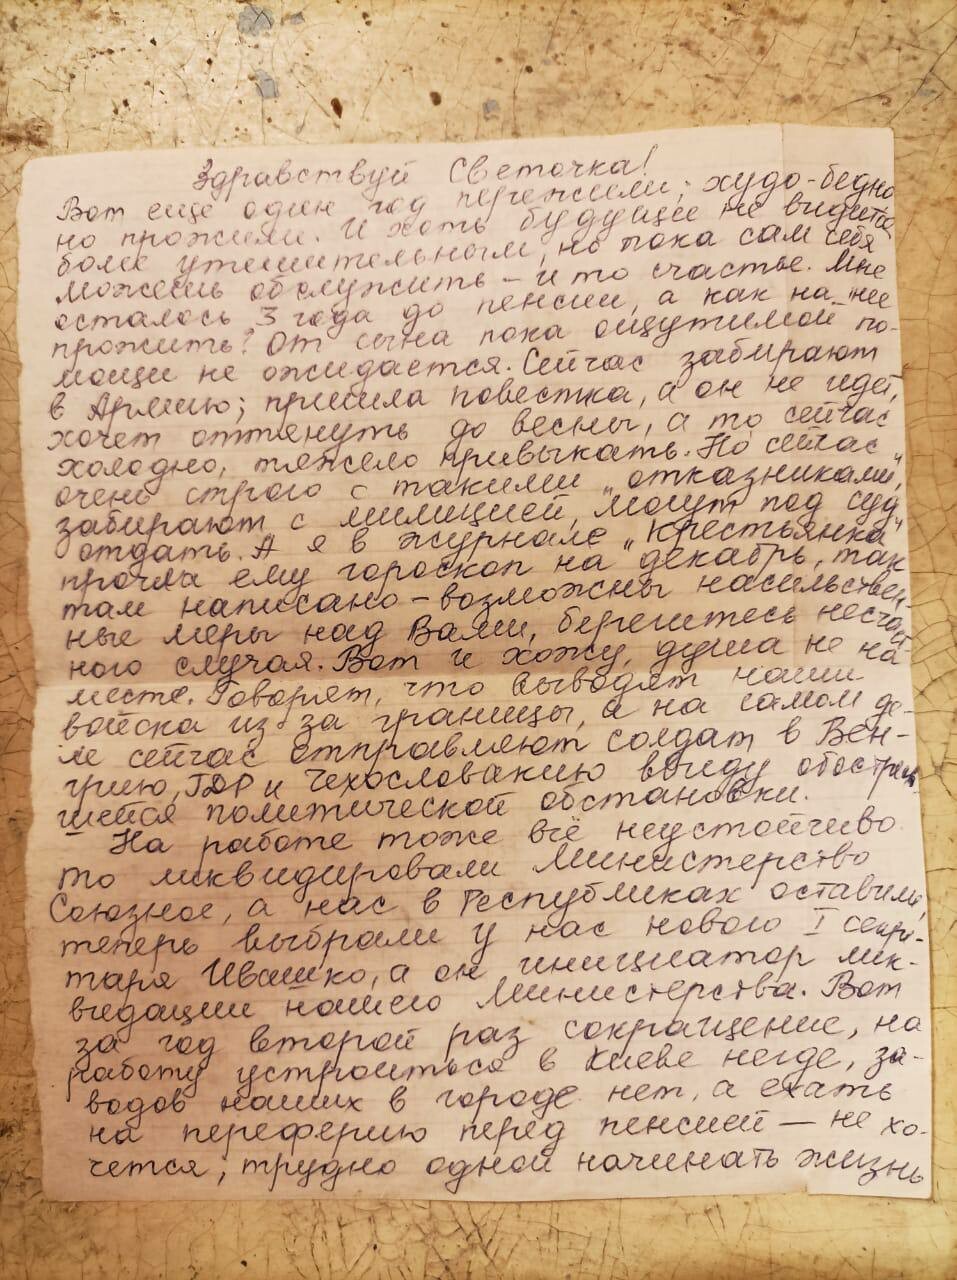 Здравствуй Светочка!
Вот еще один год пережили; худо-бедно
но прожили. И хоть будущее не видится
более утешительным, но пока сам себя
можешь обслужить – и то счастье. Мне
осталось 3 года до пенсии, а как на нее
прожить? От сына пока ощутимой по-
мощи не ожидается. Сейчас забирают
в Армию; пришла повестка, а он не идет,
хочет оттянуть до весны, а то сейчас
холодно, тяжело привыкать. Но сейчас
очень строго с такими „отказниками",
забирают с милицией, могут под суд
отдать. А я в журнале „Крестьянка"
прочла ему гороскоп на декабрь, так
там написано – возможны насильствен-
ные меры над Вами, берегитесь несчаст
ного случая. Вот и хожу, душа не на
месте. Говорят, что выводят наши
войска из за границы, а на самом де-
ле сейчас отправляют солдат в Вен-
грию, ГДР и Чехословакию ввиду обострив
шейся политической обстановки.
На работе тоже всё неустойчиво
то ликвидировали Министерство
Союзное, а нас в Республиках оставили,
теперь выбрали у нас нового I секре-
таря Ивашко, а он инициатор лик-
видации нашего Министерства. Вот
за год второй раз сокращение, на
работу устроиться в Киеве негде, за-
водов наших в городе нет, а ехать
на переферию перед пенсией — не хо-
чется; трудно одной начинать жизнь